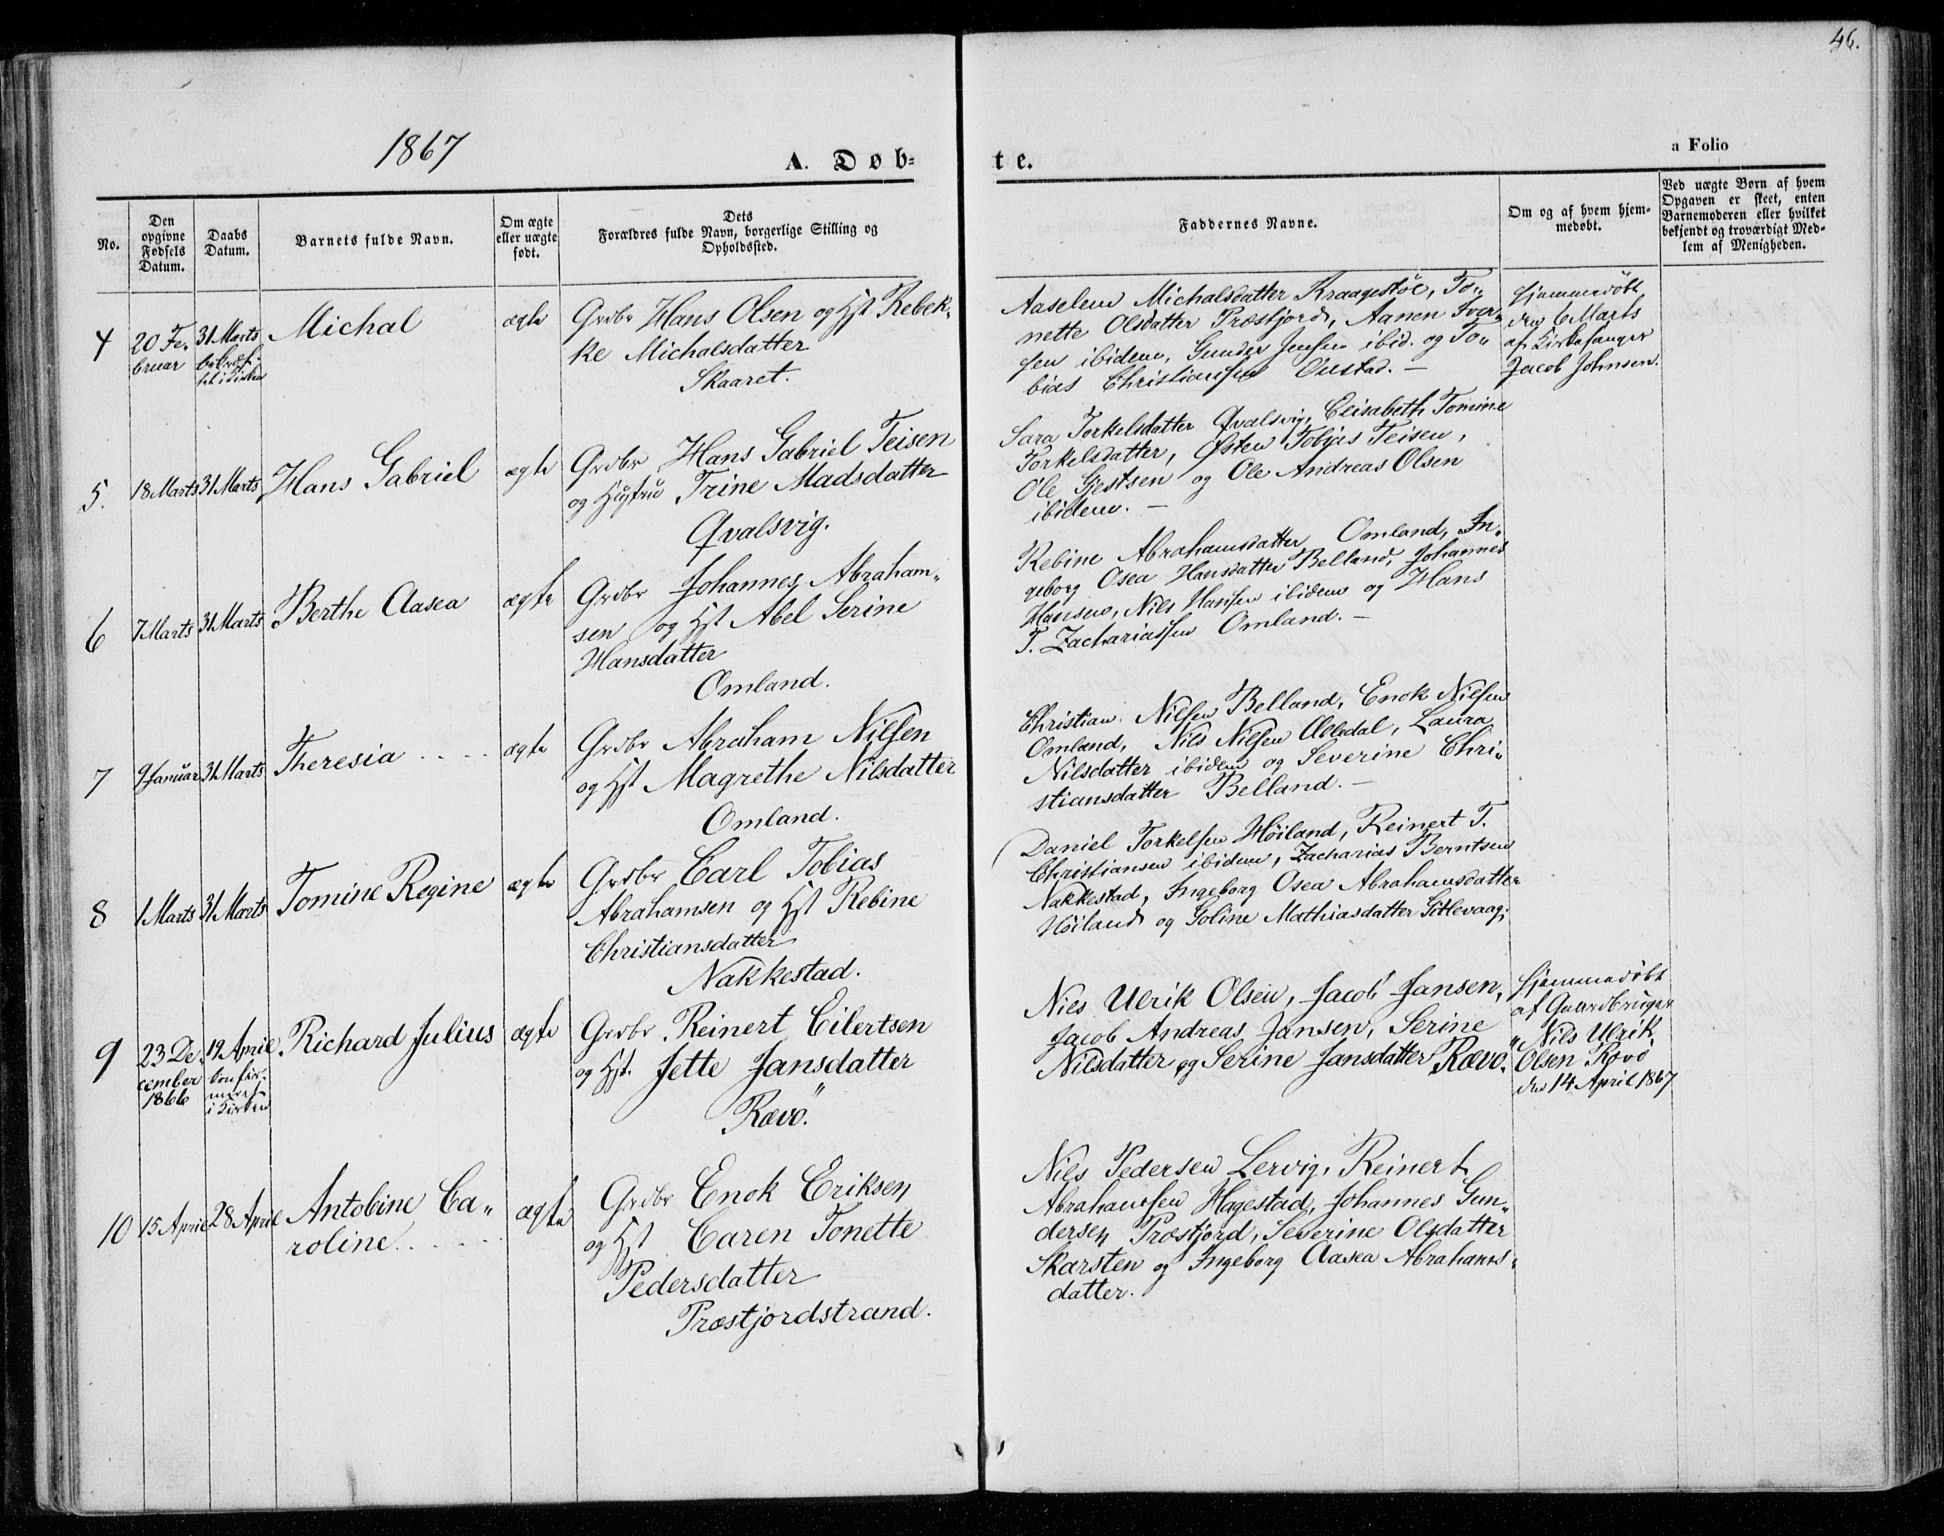 46.
1867
A. Døb=
te.
a Folio
No.
Den
opgivne
Fødsels
Datum.
Daabs
Datum.
Barnets fulde Navn.
Om ægte
eller uægte
født.
Dets
Forældres fulde Navn, borgerlige Stilling og
Opholdssted.
Faddernes Navne.
Om og af hvem hjem-
medøbt.
Ved uægte Børn af hvem
Opgaven er skeet, enten
Barnemoderen eller hvilket
bekjendt og troværdigt Med-
lem af Menigheden.
4
20 Fe-
bruar
31 Marts
i Kirken
Michal
ægte
Grdbr Hans Olsen og Hst Rebek-
ke Michalsdatter
Skaaret.
Michalsdatter Kraagestøl, To-
nette Olsdatter Præstjord, Aanen Iver-
sen ibidem, Gunder Jensen ibid. og To-
bias Christiansen Oustad. —
Hjemmedøbt
den 6 Marts
af Kirkesanger
Jacob Johnsen.
5.
18 Marts
31 Marts
Hans Gabriel
ægte
Grdbr Hans Gabriel Teisen
og Hustru Trine Madsdatter
Qvalsvig.
Sara Torkelsdatter Qvalsvig, Elisabeth Tomine
Torkelsdatter, Østen Tobias Teisen,
Ole Gjestsen og Ole Andreas Olsen
ibidem. —
6
7 Marts
31 Marts
Berthe Aasea
ægte
Grdbr Johannes Abraham-
sen og Hst Abel Serine
Hansdatter
Omland.
Rebine Abrahamsdatter Omland, In-
geborg Osea Hansdatter Belland, Johannes
Hansen, Nils Hansen ibidem og Hans
T. Zachariassen Omland. —
7
9 Januar
31 Marts
Theresia . . . .
ægte
Grdbr Abraham Nilsen
og Hst Magrethe Nilsdatter
Omland.
Christian Nilsen Belland, Enok Nilsen
Omland, Nils Nilsen Øiledal, Laura
Nilsdatter ibidem og Severine Chri-
stiansdatter Belland. —
8
1 Marts
31 Marts
Tomine Regine
ægte
Grdbr Carl Tobias
Abrahamsen og Hst Rebine
Christiansdatter
Nakkestad.
Daniel Torkelsen Høiland, Reinert T.
Christiansen ibidem, Zacharias Berntsen
Nakkestad, Ingeborg Osea Abrahamsdatter
Høiland og Goline Mathiasdatter Sitlevaag.
9
23 De-
cember
1866
19 April
i Kirken
Richard Julius
ægte
Grdbr Reinert Eilertsen
og Hst. Jette Jansdatter
Rævø.
Nils Ulrik Olsen, Jacob Jansen,
Jacob Andreas Jansen, Serine
Nilsdatter og Serine Jansdatter Rævø.
Hjemmedøbt
af Gaardbruger
Nils Ulrik
Olsen Rævø
den 14 April 1867
10
15 April
28 April
Antobine Ca-
roline . . . . .
ægte
Grdbr Enok Eriksen
og Hst Caren Tonette
Pedersdatter
Præstjordstrand.
Nils Pedersen Lervig, Reinert
Abrahamsen Hagestad, Johannes Gun-
dersen Præstjord, Severine Olsdatter
Skarsten og Ingeborg Aasea Abrahams-
datter.